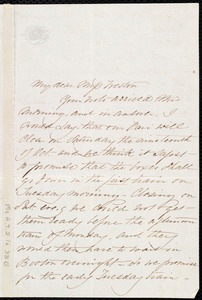 My dear Miss Weston
Your note arrived this
morning, and in answer I
would say that our Fair will
close on Saturday the nineteenth
of Oct. and we think it safe to
promise that the goods shall
go down in the first train on
Tuesday morning. Closing on
Sat. eve, we could not get
them ready before the afternoon
train of Monday and they
would then have to wait in
Boston overnight. So we promise
for the early Tuesday train